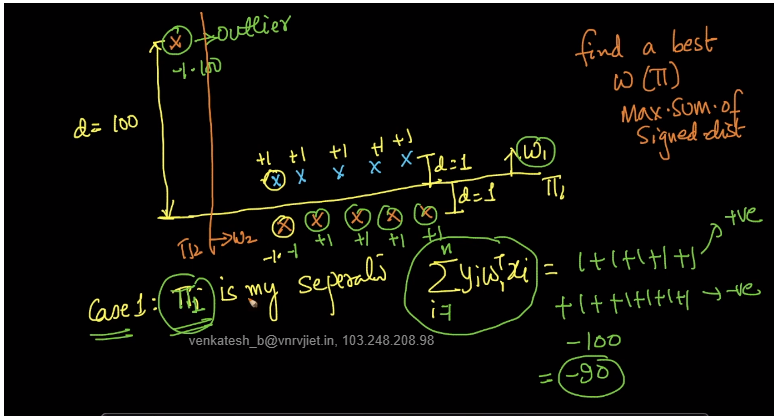 x → outlier
-1·100
d = 100
find a best
w (π)
Max·sum·of
Signed·dist
+1 +1 +1 +1 +1
x x x x x
d=1
w₁
π₁
d=1
π₂ → w₂
x x x x x
-1·-1 +1 +1 +1 +1
Case 1: π₁ is my seperati
n
Σ yᵢw₁ᵀxᵢ = 1+1+1+1+1 → +ve
i=1
+1++1+1+1+1 → -ve
-100
= -90
venkatesh_b@vnrvjiet.in, 103.248.208.98